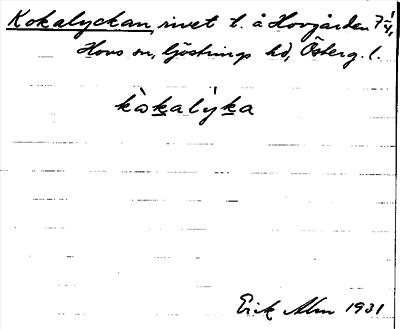 Kokalyckan, rivet t. å Hovgården 7 1/4,
Hovs sn, Göstrings hd, Österg. l.
kòkalỳka
Erik Alm 1931